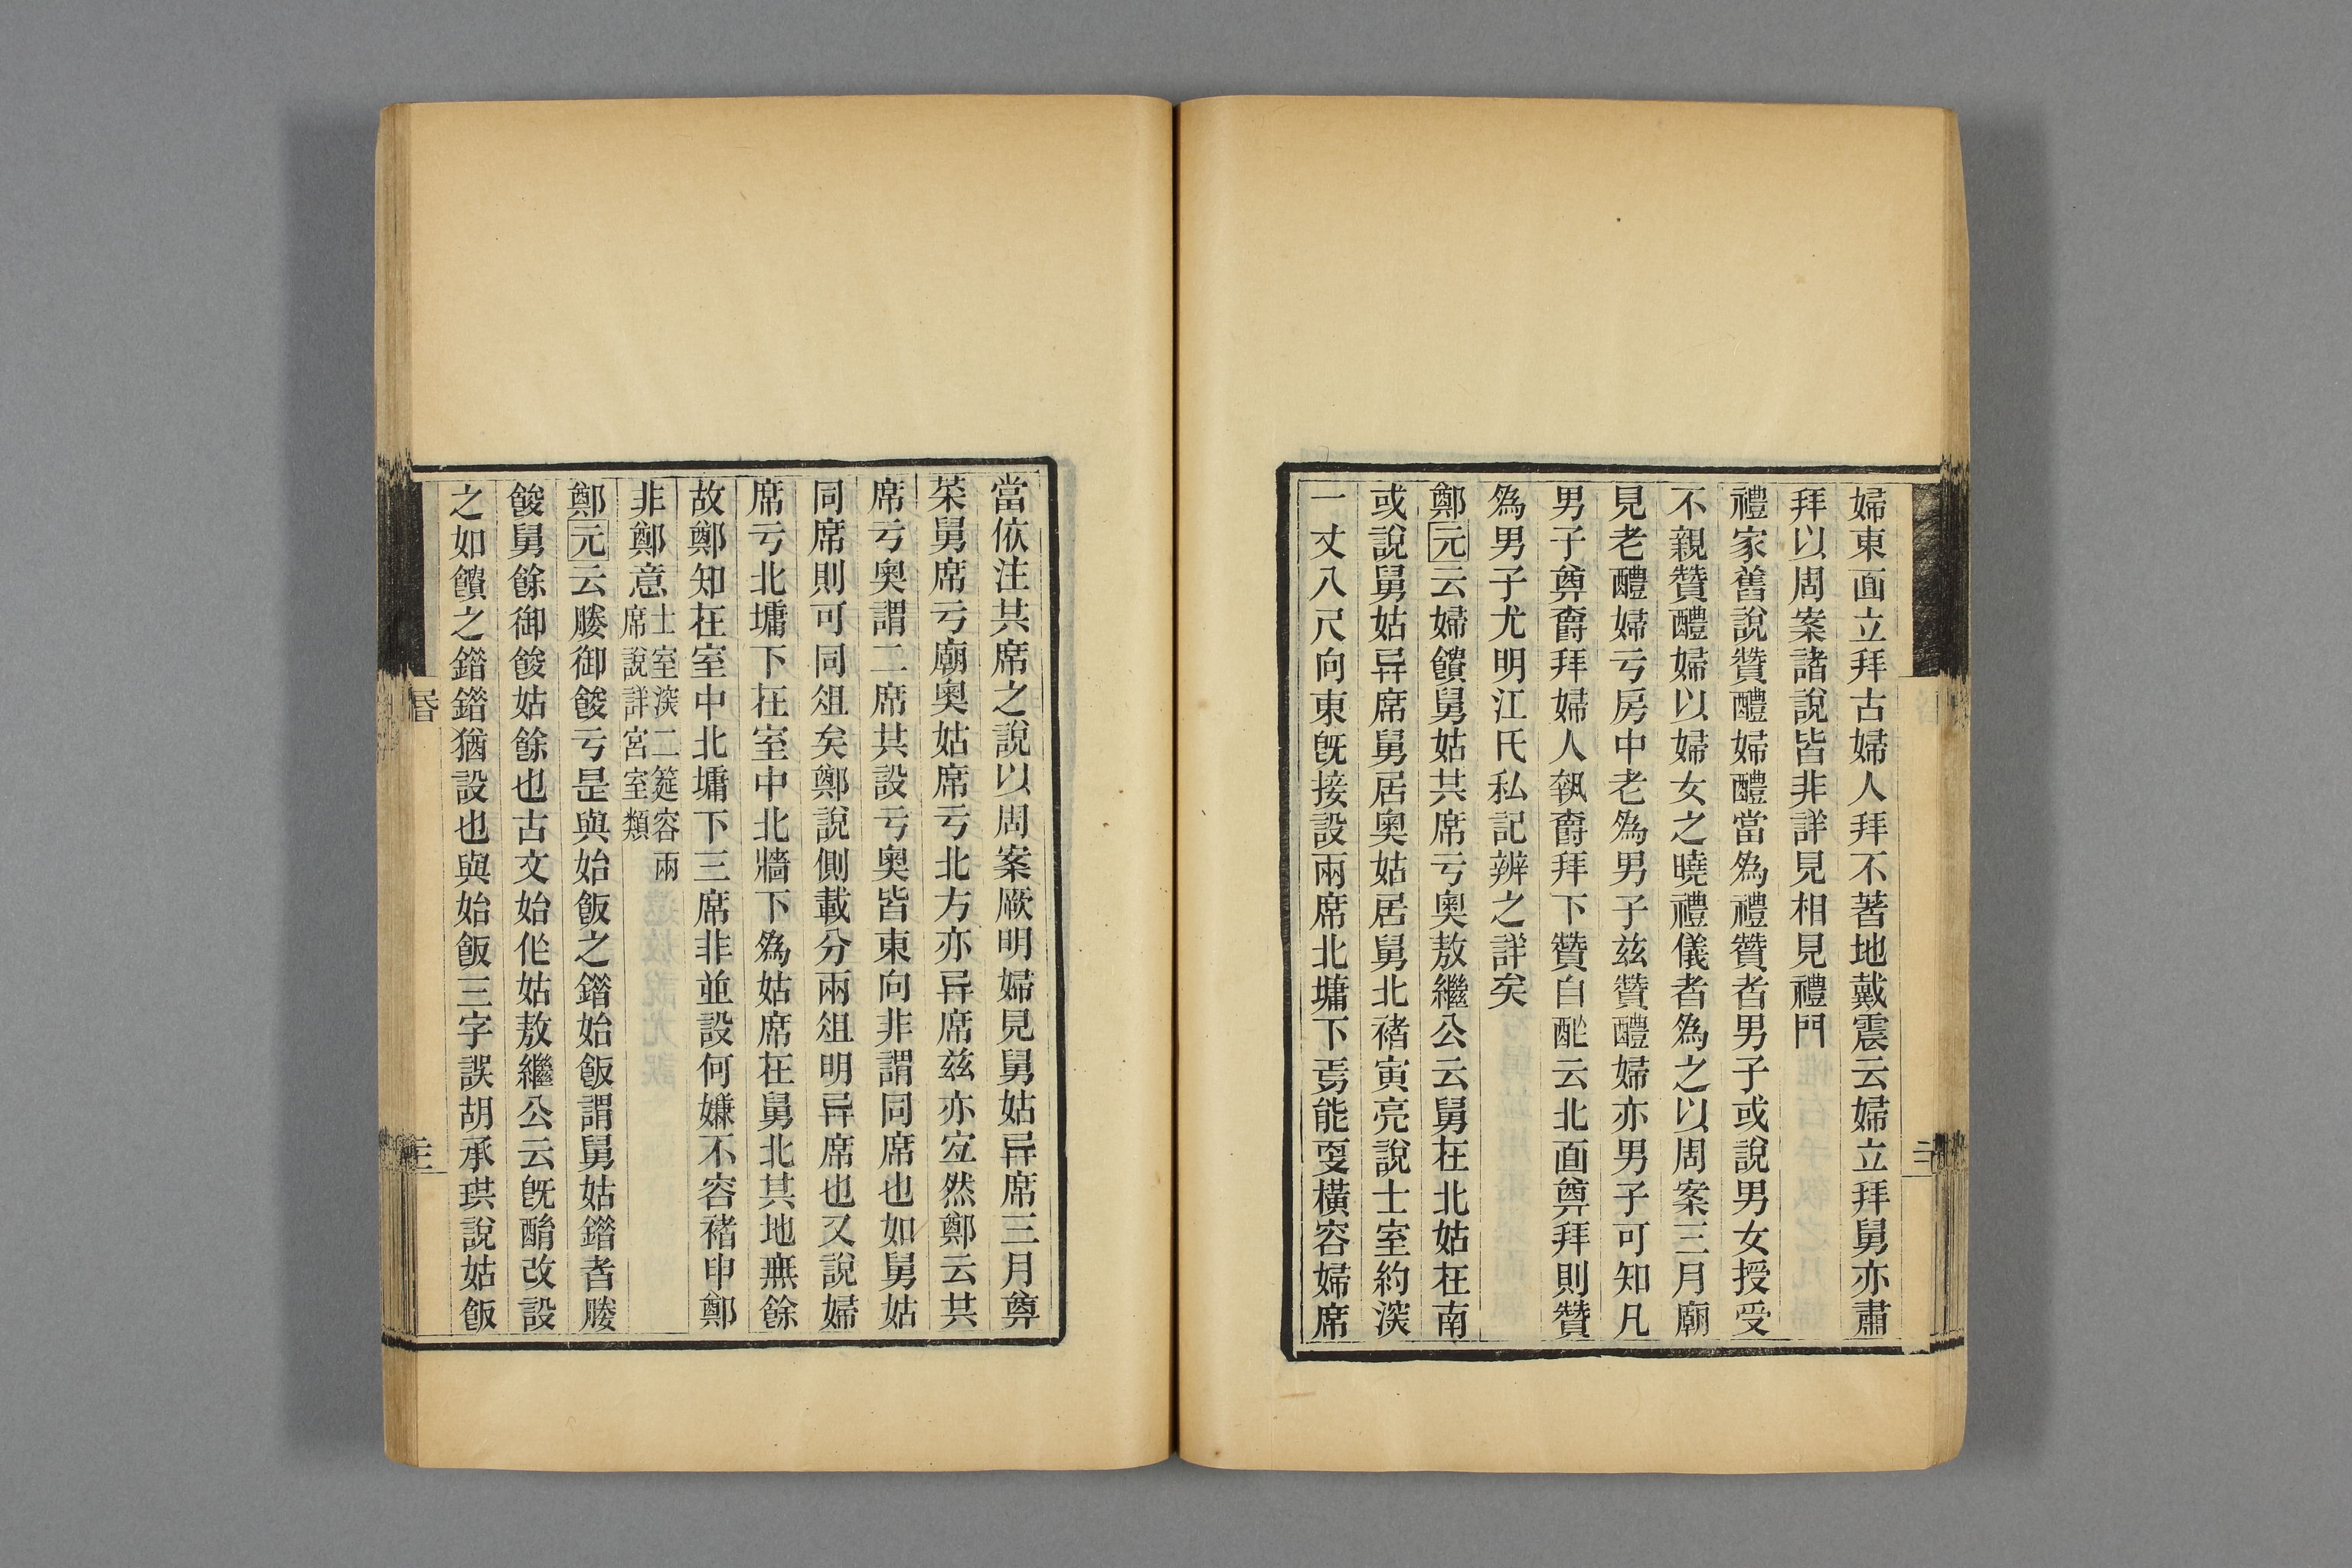 婦東面立拜古婦人拜不著地戴震云婦立拜舅亦肅
拜以周案諸說皆非詳見相見禮門
禮家舊說贊醴婦醴當爲禮贊者男子或說男女授受
不親贊醴婦以婦女之曉禮儀者爲之以周案三月廟
見老醴婦亏房中老爲男子茲贊醴婦亦男子可知凡
男子尊爵拜婦人執爵拜下贊白酢云北面尊拜則贊
爲男子尤明江氏私記辨之詳矣
鄭元云婦饋舅姑共席亏奧敖繼公云舅在北姑在南
或說舅姑异席舅居奧姑居舅北褚寅亮說士室約深
一丈八尺向東旣接設兩席北墉下焉能更橫容婦席
當依注共席之說以周案厥明婦見舅姑异席三月尊
菜舅席亏廟奧姑席亏北方亦异席茲亦宜然鄭云共
席亏奧謂二席共設亏奧皆東向非謂同席也如舅姑
同席則可同俎矣鄭說側載分兩俎明异席也又說婦
席亏北墉下在室中北牆下爲姑席在舅北其地無餘
故鄭知在室中北墉下三席非並設何嫌不容褚申鄭
非鄭意士室深二筵容兩席說詳宮室類
鄭元云媵御餕亏是與始飯之錯始飯謂舅姑錯者媵
餕舅餘御餕姑餘也古文始作姑敖繼公云旣酳改設
之如饋之錯錯猶設也與始飯三字誤胡承珙說姑飯
昏